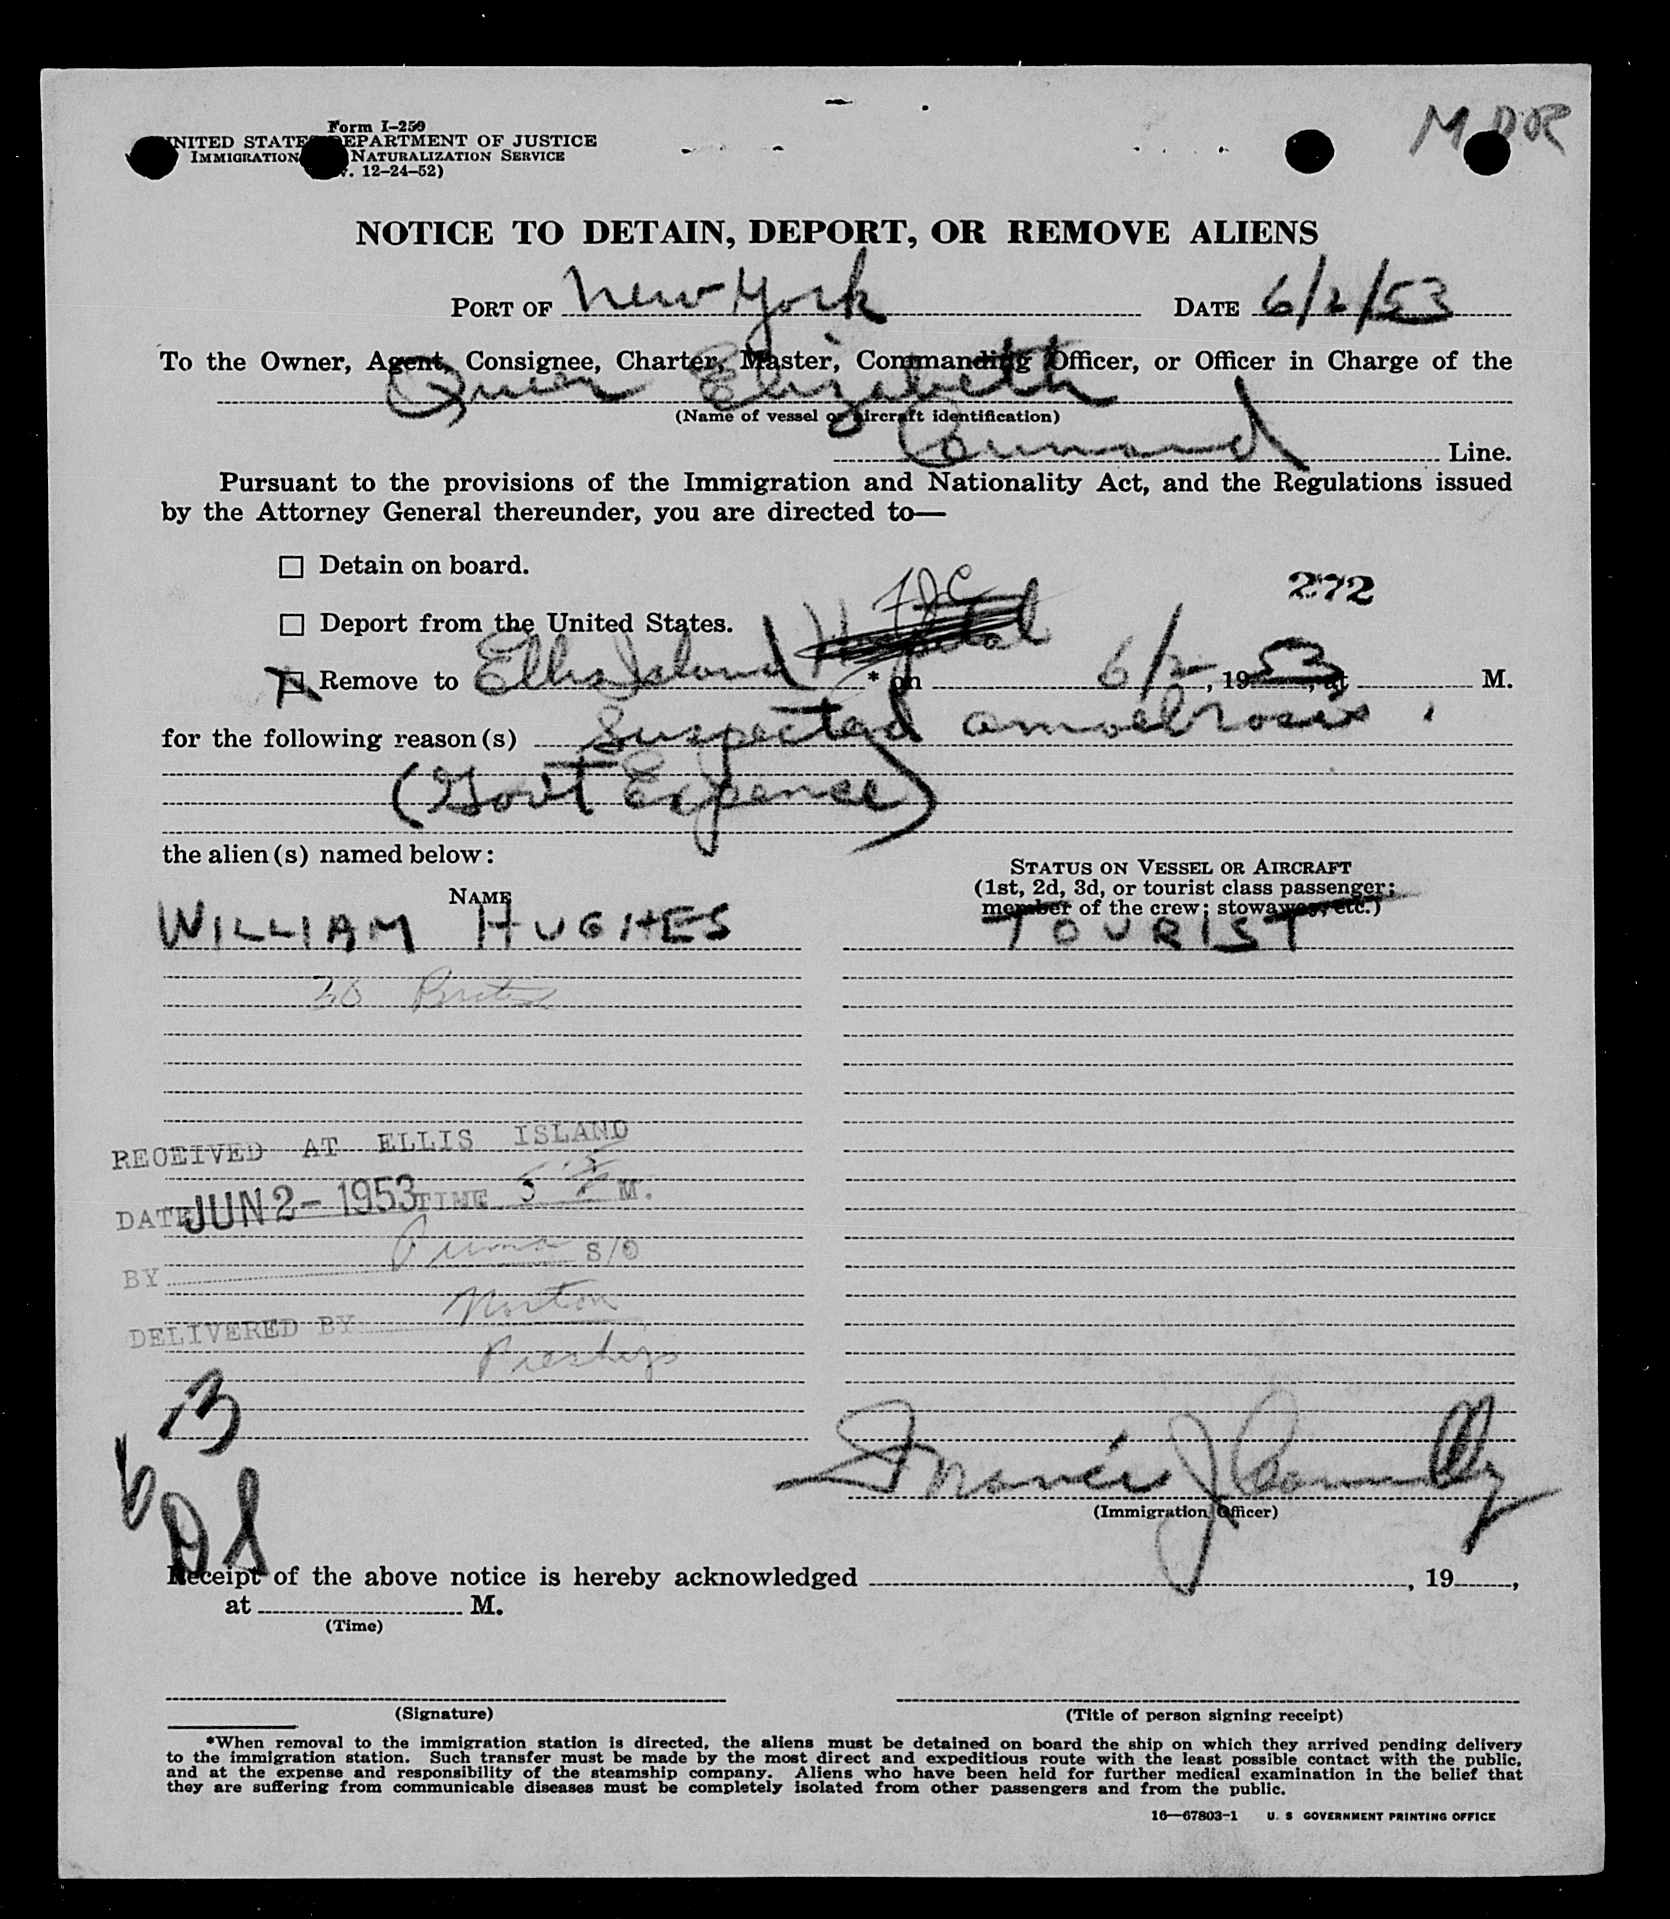 Form I-259
UNITED STATES DEPARTMENT OF JUSTICE
IMMIGRATION NATURALIZATION SERVICE
12-24-52)
NOTICE TO DETAIN, DEPORT, OR REMOVE ALIENS
PORT OF New York DATE 6/2/53
To the Owner, Agent, Consignee, Charter, Master, Commanding Officer, or Officer in Charge of the
Queen Elizabeth
(Name of vessel or aircraft identification)
Cunard Line.
Pursuant to the provisions of the Immigration and Nationality Act, and the Regulations issued
by the Attorney General thereunder, you are directed to—
☐ Detain on board.
272
☐ Deport from the United States. FJC
☒ Remove to Ellis Island Hospital * on 6/2, 1953, at M.
for the following reason(s) Suspected amoebiosis.
(Gov't Expense)
the alien(s) named below:
STATUS ON VESSEL OR AIRCRAFT
(1st, 2d, 3d, or tourist class passenger;
NAME
member of the crew; stowaway, etc.)
WILLIAM HUGHES TOURIST
RECEIVED AT ELLIS ISLAND
DATE JUN 2- 1953 TIME M.
BY S/O
DELIVERED BY Norton
Francis J Connolly
(Immigration Officer)
Receipt of the above notice is hereby acknowledged , 19 ,
at M.
(Time)
(Signature) (Title of person signing receipt)
*When removal to the immigration station is directed, the aliens must be detained on board the ship on which they arrived pending delivery
to the immigration station. Such transfer must be made by the most direct and expeditious route with the least possible contact with the public,
and at the expense and responsibility of the steamship company. Aliens who have been held for further medical examination in the belief that
they are suffering from communicable diseases must be completely isolated from other passengers and from the public.
16—67803-1 U. S GOVERNMENT PRINTING OFFICE